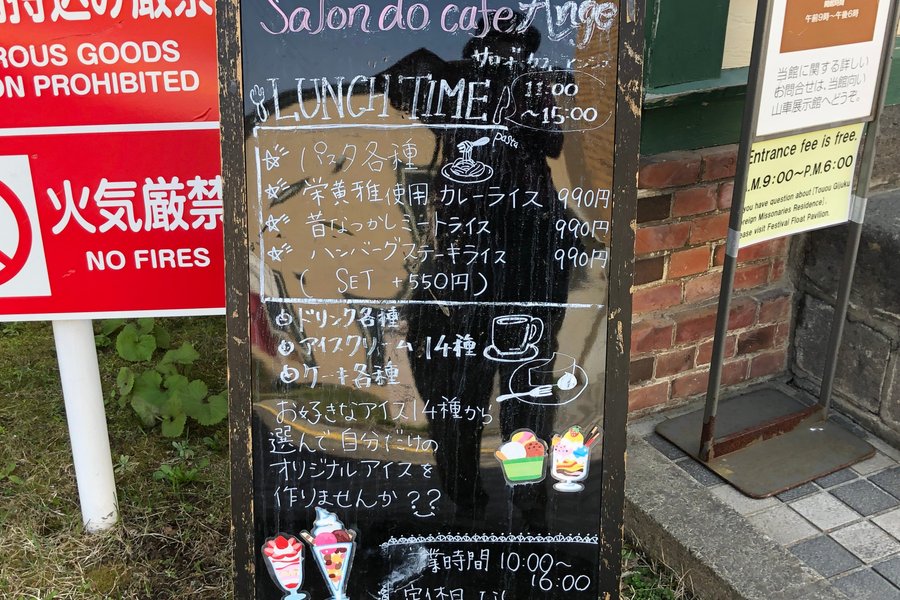 持込の厳禁
ROUS GOODS
ON PROHIBITED
火気厳禁
NO FIRES
Salon do cafe Ange
サロン・ド・カフェ アンジュ
LUNCH TIME
11:00
~15:00
パスタ各種
pasta
栄黄雅使用 カレーライス 990円
昔なつかしミートライス 990円
ハンバーグステーキライス 990円
( SET +550円)
ドリンク各種
アイスクリーム 14種
ケーキ各種
お好きなアイス14種から
選んで自分だけの
オリジナルアイスを
作りませんか??
営業時間 10:00~
16:00
定休日 なし
開館時間
午前9時~午後6時
当館に関する詳しい
お問合せは、当館向い
山車展示館へどうぞ。
Entrance fee is free.
A.M.9:00~P.M.6:00
you have question about [Touou Gijuku
oreign Missonaries Residence].
ease visit Festival Float Pavilion.